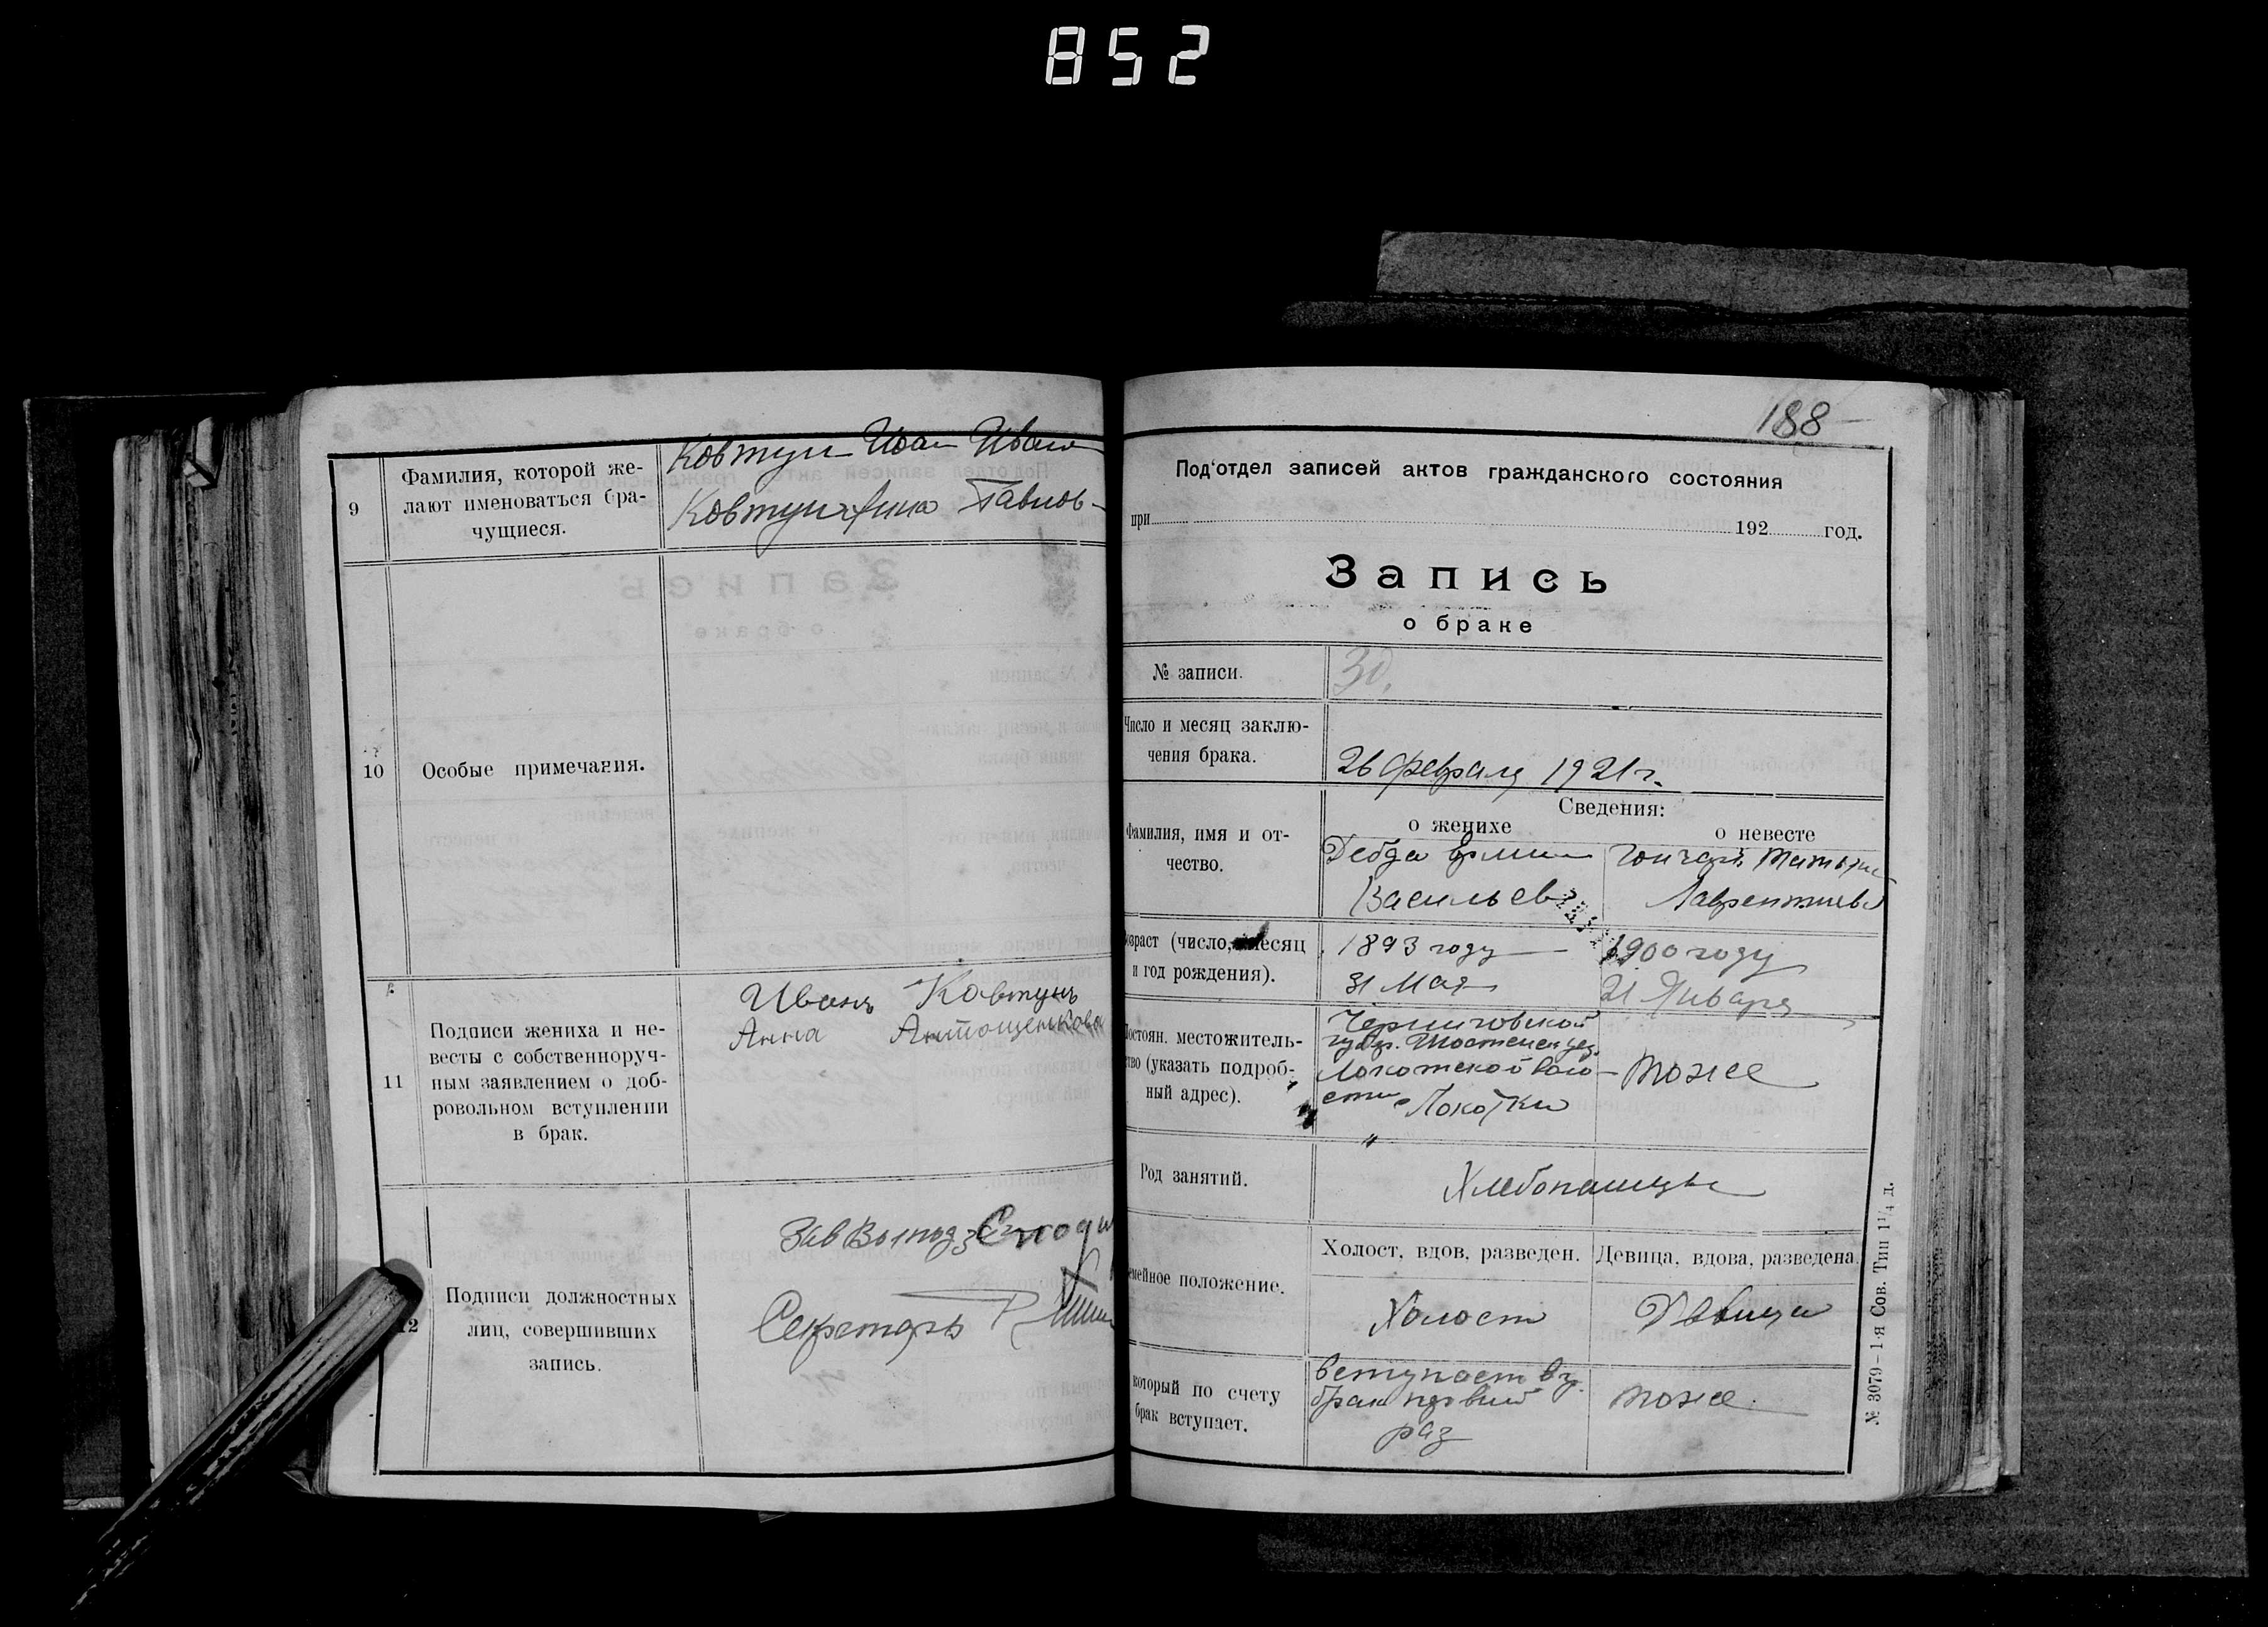 852
9
Фамилия, которой же-
лают именоваться бра-
чущиеся.
Ковтун Иван Иванов
Ковтун Анна Павлов-
10
Особые примечания.
11
Подписи жениха и не-
весты с собственноруч-
ным заявлением о доб-
ровольном вступлении
в брак.
Иванъ Ковтунъ
Анна Антощенкова
12
Подписи должностных
лиц, совершивших
запись.
Зав
Секретарь
188
Под'отдел записей актов гражданского состояния
при 192 год.
Запись
о браке
№ записи.
30.
Число и месяц заклю-
чения брака.
26 февраля 1921 г.
Сведения:
о женихе
о невесте
Фамилия, имя и от-
чество.
Дебда
Васильев
Гончаръ Татьяна
Лаврентиев
возраст (число, месяц
и год рождения).
1893 году
31 Мая
1900 году
21 Января
Постоян. местожитель-
ство (указать подроб-
ный адрес).
Черниговской
губер. Шостенск уез.
Локотской воло-
сти с Локотки
тоже
Род занятий.
Хлебопашцы
Семейное положение.
Холост, вдов, разведен.
Девица, вдова, разведена.
Холост
Девица
который по счету
брак вступает.
вступает в
брак первий
раз
тоже.
№ 3079–1-я Сов. Тип 1¹/₄ д.